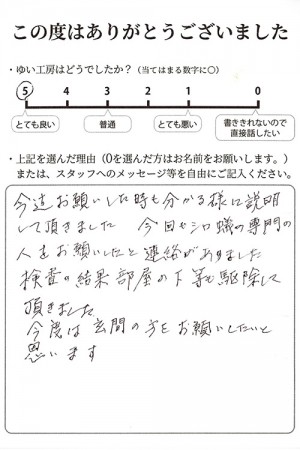 この度はありがとうございました
・ゆい工房はどうでしたか？（当てはまる数字に○）
5 4 3 2 1 0
とても良い 普通 とても悪い 書ききれないので直接話したい
・上記を選んだ理由（0を選んだ方はお名前をお願いします。）
または、スタッフへのメッセージ等を自由にご記入ください。
今迄お願いした時も分かる様に説明
して頂きました 今回もシロ蟻の専門の
人をお願いしたと連絡がありました
検査の結果部屋の下等も駆除して
頂きました
今度は玄関の方をお願いしたいと
思います